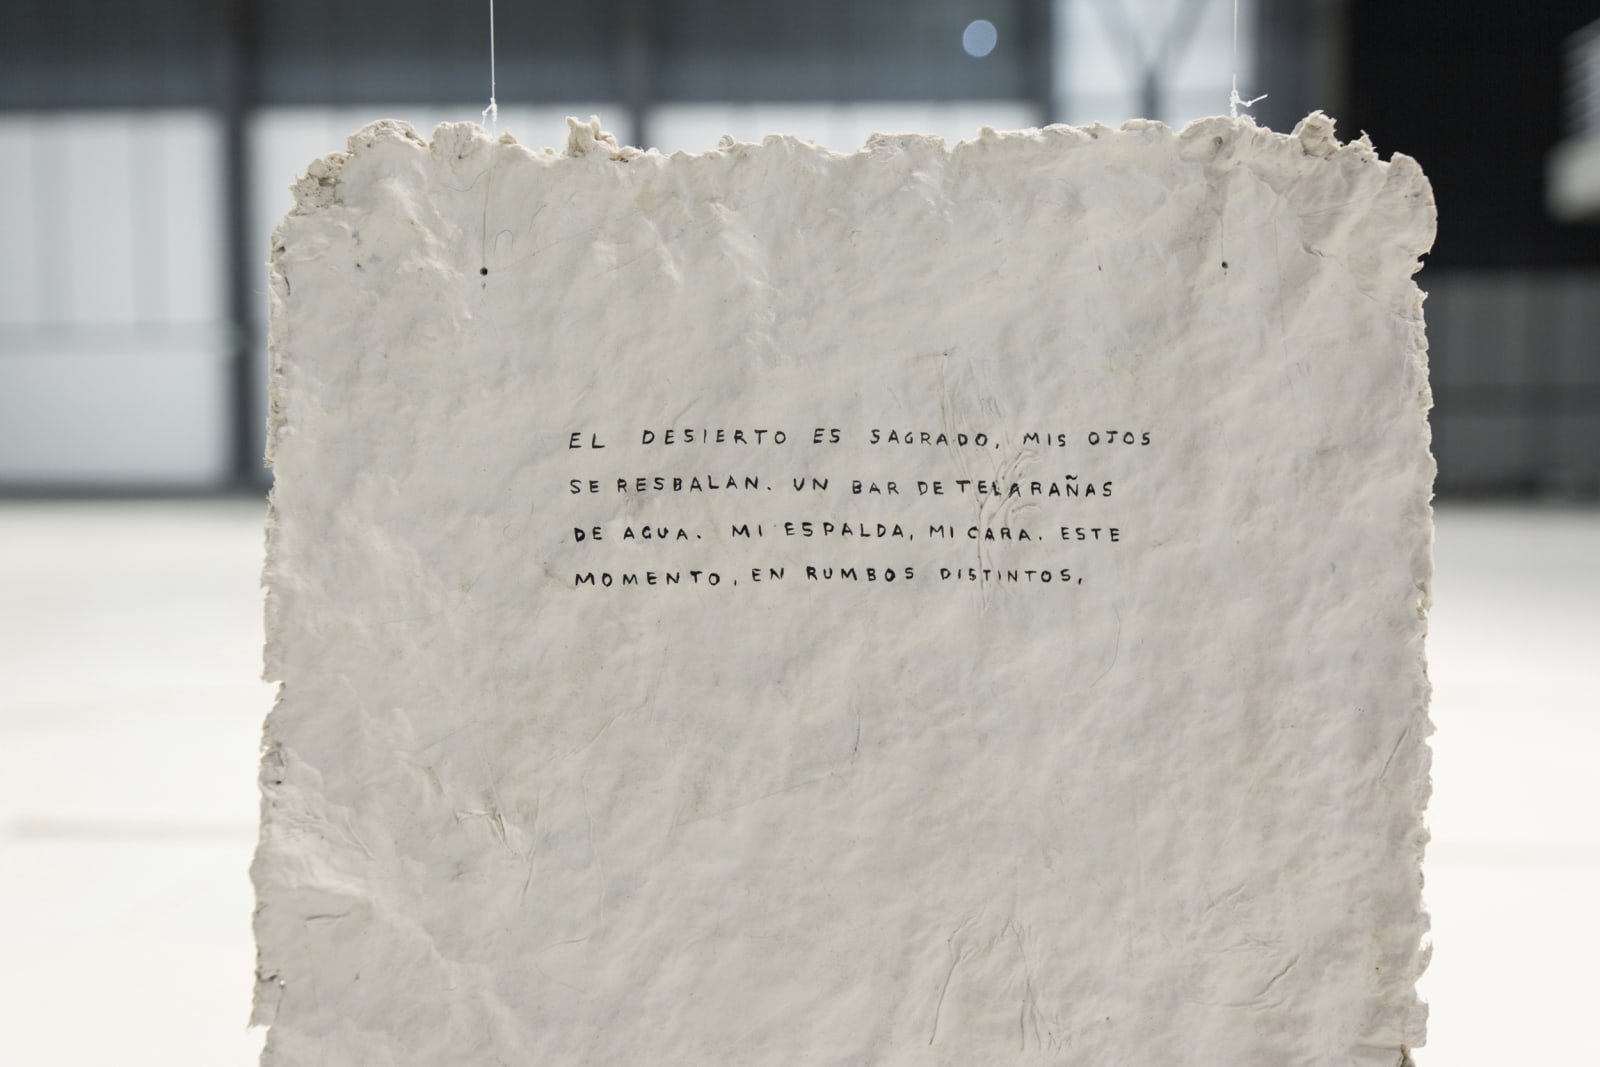 EL DESIERTO ES SAGRADO, MIS OJOS
SE RESBALAN. UN BAR DE TELARAÑAS
DE AGUA. MI ESPALDA, MI CARA. ESTE
MOMENTO, EN RUMBOS DISTINTOS,